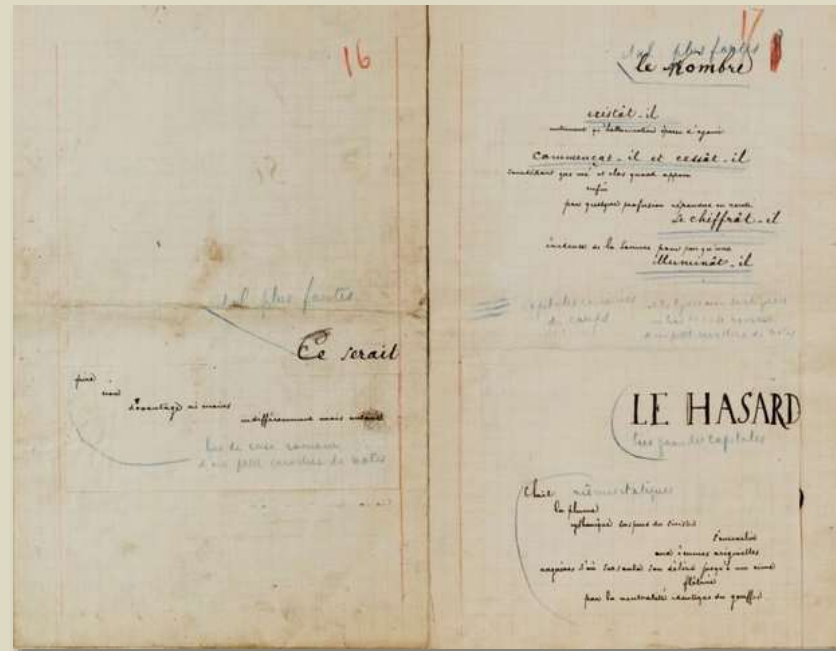 16
ital. plus fortes
Ce serait
pire
non
davantage ni moins
indifféremment mais autant
bas de casse romain
d'un petit caractère de notes
17
ital. plus fortes
le Nombre
existât-il
autrement qu'hallucination éparse d'agonie
commençât-il et cessât-il
sourdant que nié et clos quand apparu
enfin
par quelque profusion répandue en rareté
se chiffrât-il
évidence de la somme pour peu qu'une
illuminât-il
du corps
bas de casse romain
d'un petit caractère de notes
LE HASARD
très grandes capitales
Choit mêmes italiques
la plume
rythmique suspens du sinistre
s'ensevelir
aux écumes originelles
naguères d'où sursauta son délire jusqu'à une cime
flétrie
par la neutralité identique du gouffre